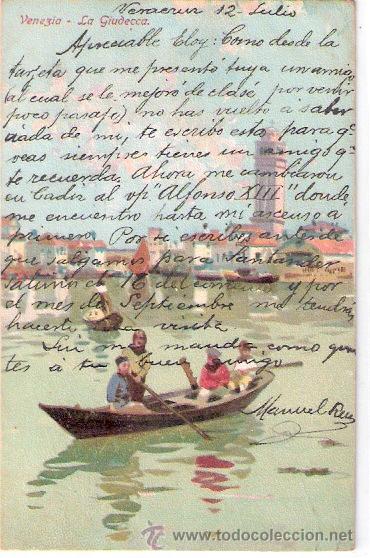 Veracruz 12 Julio
Venezia - La Giudecca.
Apreciable Eloy: Como desde la
tarjeta que me presentó tuya un amigo
(al cual se le mejoro de clase por venir
poco pasaje) no has vuelto a saber
nada de mi, te escribo esta para q̄
veas siempre tienes un amigo q̄
te recuerda. Ahora me cambiaron
en Cadiz al v/p "Alfonso XIII" donde
me encuentro hasta mi ascenso a
primero Por si escribes entiende
que salgamos para Santander
el 16 del y por
el mes de Septiembre me tendrás
hacerte una visita.
Sin mas manda como gus
tes a tu buen amigo
Manuel
www.todocoleccion.net